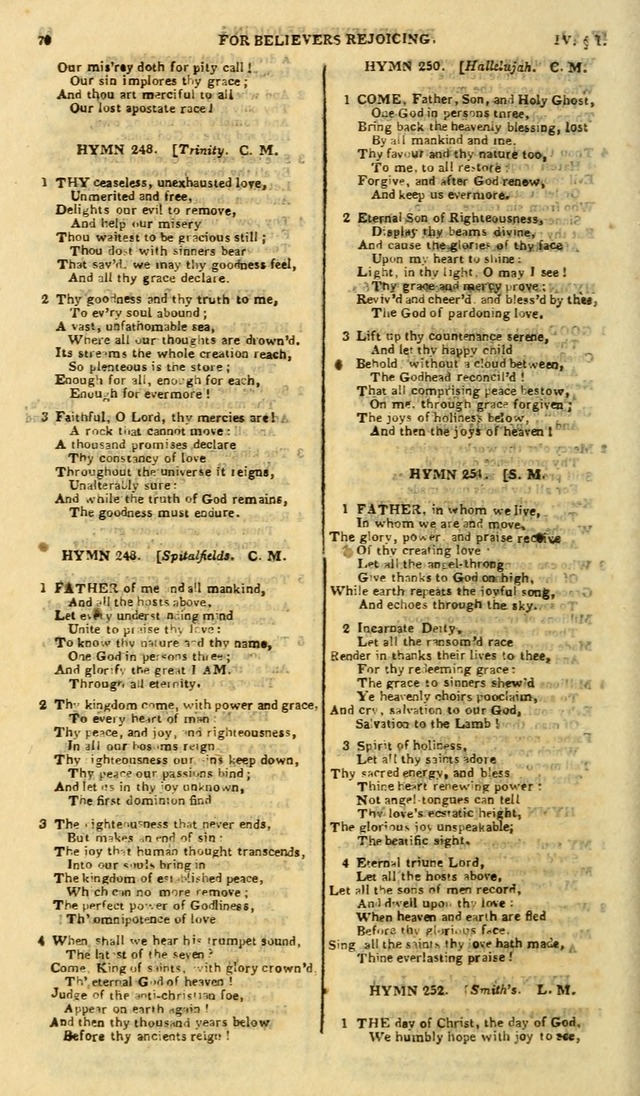 70
FOR BELIEVERS REJOICING.
IV. § 1.
Our mis'ry doth for pity call!
Our sin implores thy grace;
And thou art merciful to all
Our lost apostate race!
HYMN 248. [Trinity. C. M.
1 THY ceaseless, unexhausted love,
Unmerited and free,
Delights our evil to remove,
And help our misery
Thou waitest to be gracious still;
Thou dost with sinners bear
That sav'd, we may thy goodness feel,
And all thy grace declare.
2 Thy goodness and thy truth to me,
To ev'ry soul abound;
A vast, unfathomable sea,
Where all our thoughts are drown'd.
Its streams the whole creation reach,
So plenteous is the store;
Enough for all, enough for each,
Enough for evermore!
3 Faithful, O Lord, thy mercies are!
A rock that cannot move:
A thousand promises declare
Thy constancy of love
Throughout the universe it reigns,
Unalterably sure:
And while the truth of God remains,
The goodness must endure.
HYMN 248. [Spitalfields. C. M.
1 FATHER of me and all mankind,
And all the hosts above,
Let every understanding mind
Unite to praise thy love:
To know thy nature and thy name,
One God in persons three;
And glorify the great I AM.
Through all eternity.
2 Thy kingdom come, with power and grace,
To every heart of man:
Thy peace, and joy, and righteousness,
In all our bosoms reign
Thy righteousness our sins keep down,
Thy peace our passions bind;
And let us in thy joy unknown,
The first dominion find
3 The righteousness that never ends,
But makes an end of sin:
The joy that human thought transcends,
Into our souls bring in
The kingdom of established peace,
Which can no more remove;
The perfect power of Godliness,
Th' omnipotence of love
4 When shall we hear his trumpet sound,
The latest of the seven?
Come, King of saints, with glory crown'd,
Th' eternal God of heaven!
Judge of the anti-christian foe,
Appear on earth again!
And then thy thousand years below
Before thy ancients reign!
HYMN 250. [Hallelujah. C. M.
1 COME, Father, Son, and Holy Ghost,
One God in persons three,
Bring back the heavenly blessing, lost
By all mankind and me.
Thy favour and thy nature too,
To me, to all restore:
Forgive, and after God renew,
And keep us evermore.
2 Eternal Son of Righteousness,
Display thy beams divine,
And cause the glories of thy face
Upon my heart to shine:
Light, in thy light, O may I see!
Thy grace and mercy prove:
Reviv'd and cheer'd, and bless'd by thee,
The God of pardoning love.
3 Lift up thy countenance serene,
And let thy happy child
Behold without a cloud between,
The Godhead reconcil'd!
That all comprising peace bestow,
On me, through grace forgiven;
The joys of holiness below,
And then the joys of heaven!
HYMN 251. [S. M.
1 FATHER, in whom we live,
In whom we are and move,
The glory, power and praise receive
Of thy creating love
Let all the angel-throng
Give thanks to God on high,
While earth repeats the joyful song,
And echoes through the sky.
2 Incarnate Deity,
Let all the ransom'd race
Render in thanks their lives to thee,
For thy redeeming grace:
The grace to sinners shew'd
Ye heavenly choirs proclaim,
And cry, salvation to our God,
Salvation to the Lamb!
3 Spirit of holiness,
Let all thy saints adore
Thy sacred energy, and bless
Thine heart renewing power:
Not angel-tongues can tell
Thy love's ecstatic height,
The glorious joy unspeakable;
The beatific sight.
4 Eternal triune Lord,
Let all the hosts above,
Let all the sons of men record,
And dwell upon thy love:
When heaven and earth are fled
Before thy glorious face,
Sing all the saints thy love hath made,
Thine everlasting praise!
HYMN 252. [Smith's. L. M.
1 THE day of Christ, the day of God,
We humbly hope with joy to see,